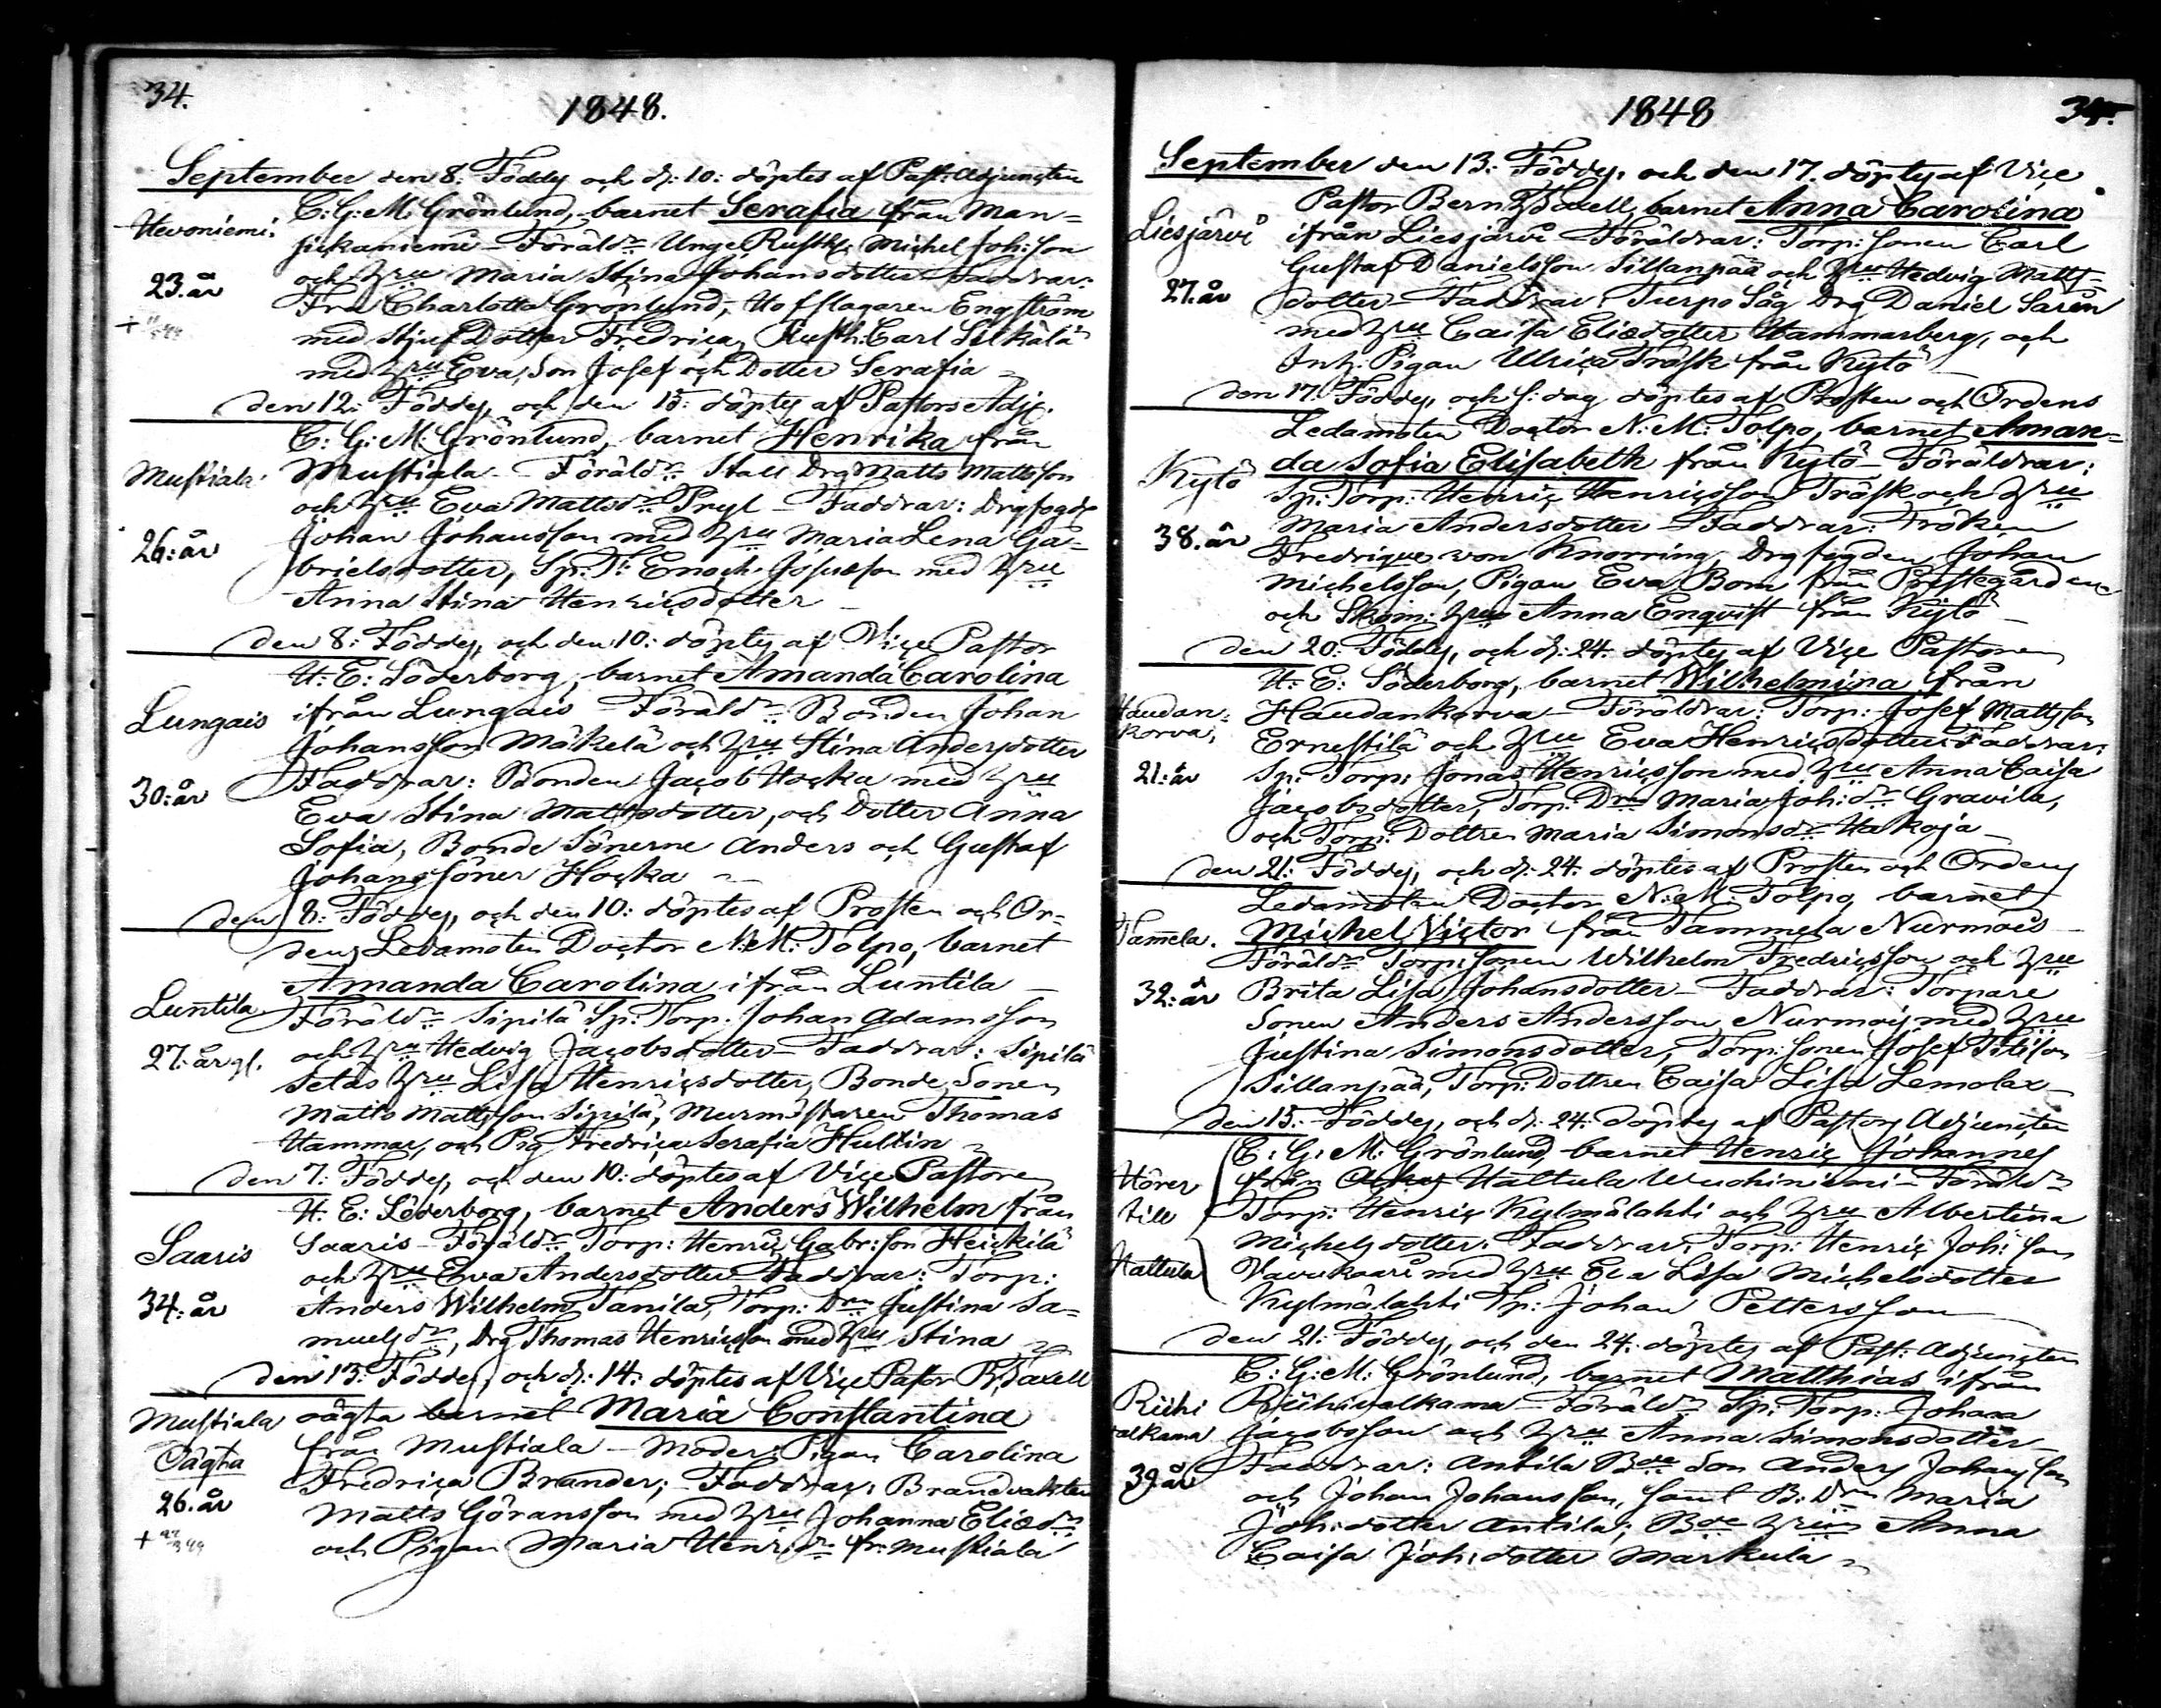 34.
1848.
September den 8: Föddes och d: 10: döptes af Past: Adjuncten
C: G: M: Grönlund, barnet Serafia från Man=
Hevoniemi.
Föräld:r Unge Rusth: Michel Joh:son
och Hru Maria Stina Johansdotter Faddrar:
23. år
Fru Charlotta Grönlund, Hofslagaren Engström
med Stjuf Dotter Fredrica, Rusth: Carl Silkälä
med Hru Eva, Son Josef och Dotter Serafia
den 12: Föddes, och den 15: döptes af Pastors Adj:
C: G: M: Grönlund, barnet Henrika från
Mustiala
Mustiala Föräld:r Stall Drg Matts Mattsson
och Hru Eva Mattsd:r Pryl Faddrar: Drgfogde
26: år
Johan Johansson med Hru Maria Lena Ga=
brielsdotter, Sp: T: Enoch Josefsson med Hru
Anna Stina Henricsdotter
den 8: Föddes, och den 10: döptes af Vice Pastor
H: E: Söderborg, barnet Amanda Carolina
Lungais
ifrån Lungais Föräld:r Bonden Johan
Johansson Mäkelä och Hru Stina Andersdotter
30: år
Faddrar: Bonden Jacob Hocka med Hru
Eva Stina Mattsdotter, och Dotter Anna
Sofia, Bonde Sönerne Anders och Gustaf
Johanssöner Hocka
den 8: Föddes, och den 10: döptes af Prosten och Or=
dens Ledamoten Doctor N: M: Tolpo, barnet
Amanda Carolina ifrån Luntila
Luntila
Föräld:r Sipilä Sp: Torp. Johan Adamsson
27. år gl.
och Hru Hedvig Jacobsdotter Faddrar: Sipilä
Setas Hru Lisa Henricsdotter, Bonde Sonen
Matts Mattsson Sipilä, Murmästaren Thomas
Hammar, och Pig Fredrica Serafia Hultin
den 7: Föddes, och den 10: döptes af Vice Pastoren
H: E: Söderborg, barnet Anders Wilhelm från
Saaris
Saaris Föräld:r Torp: Henric Gabr:son Heickilä
och Hru Eva Andersdotter Faddrar: Torp:
34: år
Anders Wilhelm Tanila, Torp: D:rn Justina Sa=
muelsd:r, Drg Thomas Henricsson med Hru Stina
den 13: Föddes, och d: 14: döptes af Vice Pastor B: Taxell
Mustiala
oägta barnet Maria Constantina
Oägta
från Mustiala Moder: Pigan Carolina
Fredrica Brander; Faddrar: Brandvakten
26. år
Matts Göransson med Hru Johanna Eliæd:r
och Pigan Maria Henr:d:r fr: Mustiala
1848
34.
September den 13: Föddes, och den 17. döptes af Vice
Pastor Bernh: Taxell, barnet Anna Carolina
Liesjärvi
ifrån Liesjärvi Föräldrar: Torp: sonen Carl
Gustaf Danielsson Sillanpää och Hru Hedvig Matts
27. år
dotter Faddrar: Turpo Såg Drg Daniel Sarén
med Hru Caisa Eliædotter Hammarberg, och
Inh. Pigan Ulrica Träsk från Kytö
den 17. Föddes, och s: dag döptes af Prosten och Ordens
Ledamoten Doctor N: M: Tolpo, barnet Aman=
Kytö
da Sofia Elisabeth från Kytö Föräldrar:
Sp: Torp: Henric Henricsson Träsk och Hru
38. år
Maria Andersdotter Faddrar: Fröken
Fredrique von Knorring, Drg fogden Johan
Michelsson, Pigan Eva Bom från Prostegården
och Skom: Hru Anna Enqvist från Kytö
den 20: Föddes, och d: 24. döptes af Vice Pastoren
H: E: Söderborg, barnet Wilhelmina från
Haudan=
korva,
Haudankorva Föräldrar: Torp: Josef Mattsson
Ernestilä och Hru Eva Henricsdotter Faddrar:
21: år
Sp: Torp: Jonas Henricsson med Hru Anna Caisa
Jacobsdotter, Torp: D:rn Maria Joh:d:r Gravila,
och Torp: Dottren Maria Simonsd:r Hakoja
den 21. Föddes, och d: 24: döptes af Prosten och Ordens
Ledamoten Doctor N: M: Tolpo, barnet
Tamela.
Michel Victor från Tammela Nurmois
Föräld:r Torp: Sonen Wilhelm Fredricsson och Hru
32: år
Brita Lisa Johansdotter Faddrar: Torpare
Sonen Anders Andersson Nurmois med Hru
Justina Simonsdotter, Torp: sonen Josef
Sillanpää, Torp: Dottren Caisa Lisa Lemola
den 15: Föddes, och d: 24. döptes af Pastors Adjuncten
C: G: M: Grönlund, barnet Henric Johannes
Hörer
till
Hattula
från Hattula Wuohiniemi Föräld:r
Torp: Henric Kylmälahti och Hru Albertina
Michelsdotter. Faddrar: Torp: Henric Joh:son
Vavukaari med Hru Eva Lisa Michelsdotter
Kylmälahti Tp: Johan Pettersson
den 21: Föddes, och den 24: döptes af Past: Adjuncten
C: G: M: Grönlund, barnet Matthias ifrån
Riihi
valkama
Riihivalkama Föräld:r Sp: Torp: Johan
Jacobsson och Hru Anna Simonsdotter
39. år
Faddrar: Antila Bde Son Anders Johansson
och Johan Johansson, samt B: D:rn Maria
Joh:dotter Antila; Bde Hrun Anna
Caisa Joh:dotter Markula